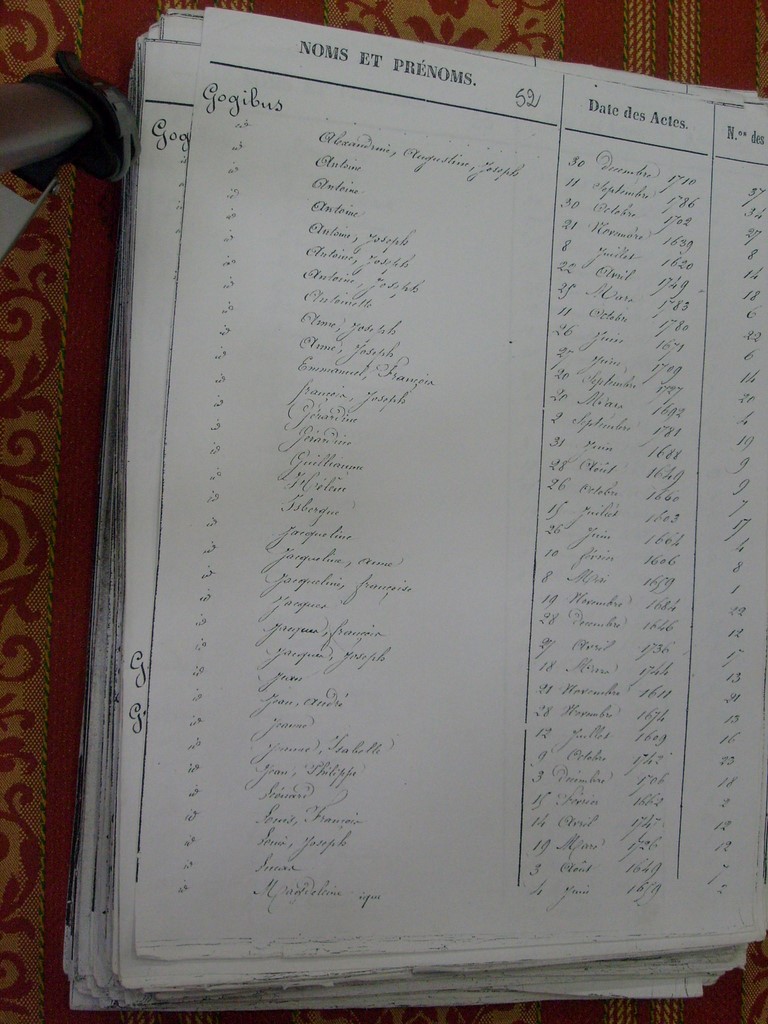 NOMS ET PRÉNOMS. 52 Date des Actes. N.os des
Gogibus
Gog
id Alexandrine, Augustine, Joseph 30 Decembre 1710 37
id Antoine 11 Septembre 1786 34
id Antoine 30 Octobre 1702 27
id Antoine 21 Novembre 1639 8
id Antoine, Joseph 8 Juillet 1620 14
id Antoine, Joseph 22 Avril 1749 18
id Antoine, Joseph 25 Mars 1783 6
id Antoinette 11 Octobre 1780 22
id Anne, Joseph 26 Juin 1671 6
id Anne, Joseph 27 Juin 1709 14
id Emmanuel, François 20 Septembre 1727 20
id françois, Joseph 20 Mars 1692 4
id Gérardine 2 Septembre 1781 19
id Gérardine 31 Juin 1688 9
id Guilliaume 28 Août 1649 9
id 26 Octobre 1660 7
id Isbergue 15 Juillet 1603 17
id Jacqueline 26 Juin 1664 4
id Jacqueline, anne 10 fevrier 1606 8
id Jacqueline, françoise 8 Mars 1659 1
id Jacques 19 Novembre 1684 22
id Jacques, françois 28 Decembre 1646 12
id Jacques, Joseph 27 Avril 1736 17
id Jean 18 Mars 1744 13
id Jean, andré 21 Novembre 1611 21
id Jeanne 28 Novembre 1674 13
id Jeanne, Isabelle 12 Juillet 1609 16
id Jean, Philippe 9 Octobre 1742 23
id Léonard 3 Decembre 1706 18
id Louis, François 15 Février 1662 2
id Louis, Joseph 14 Avril 1747 12
id Lucas 19 Mars 1726 12
id Magdeleine 3 Août 1649 7
4 Juin 1659 2
G
G